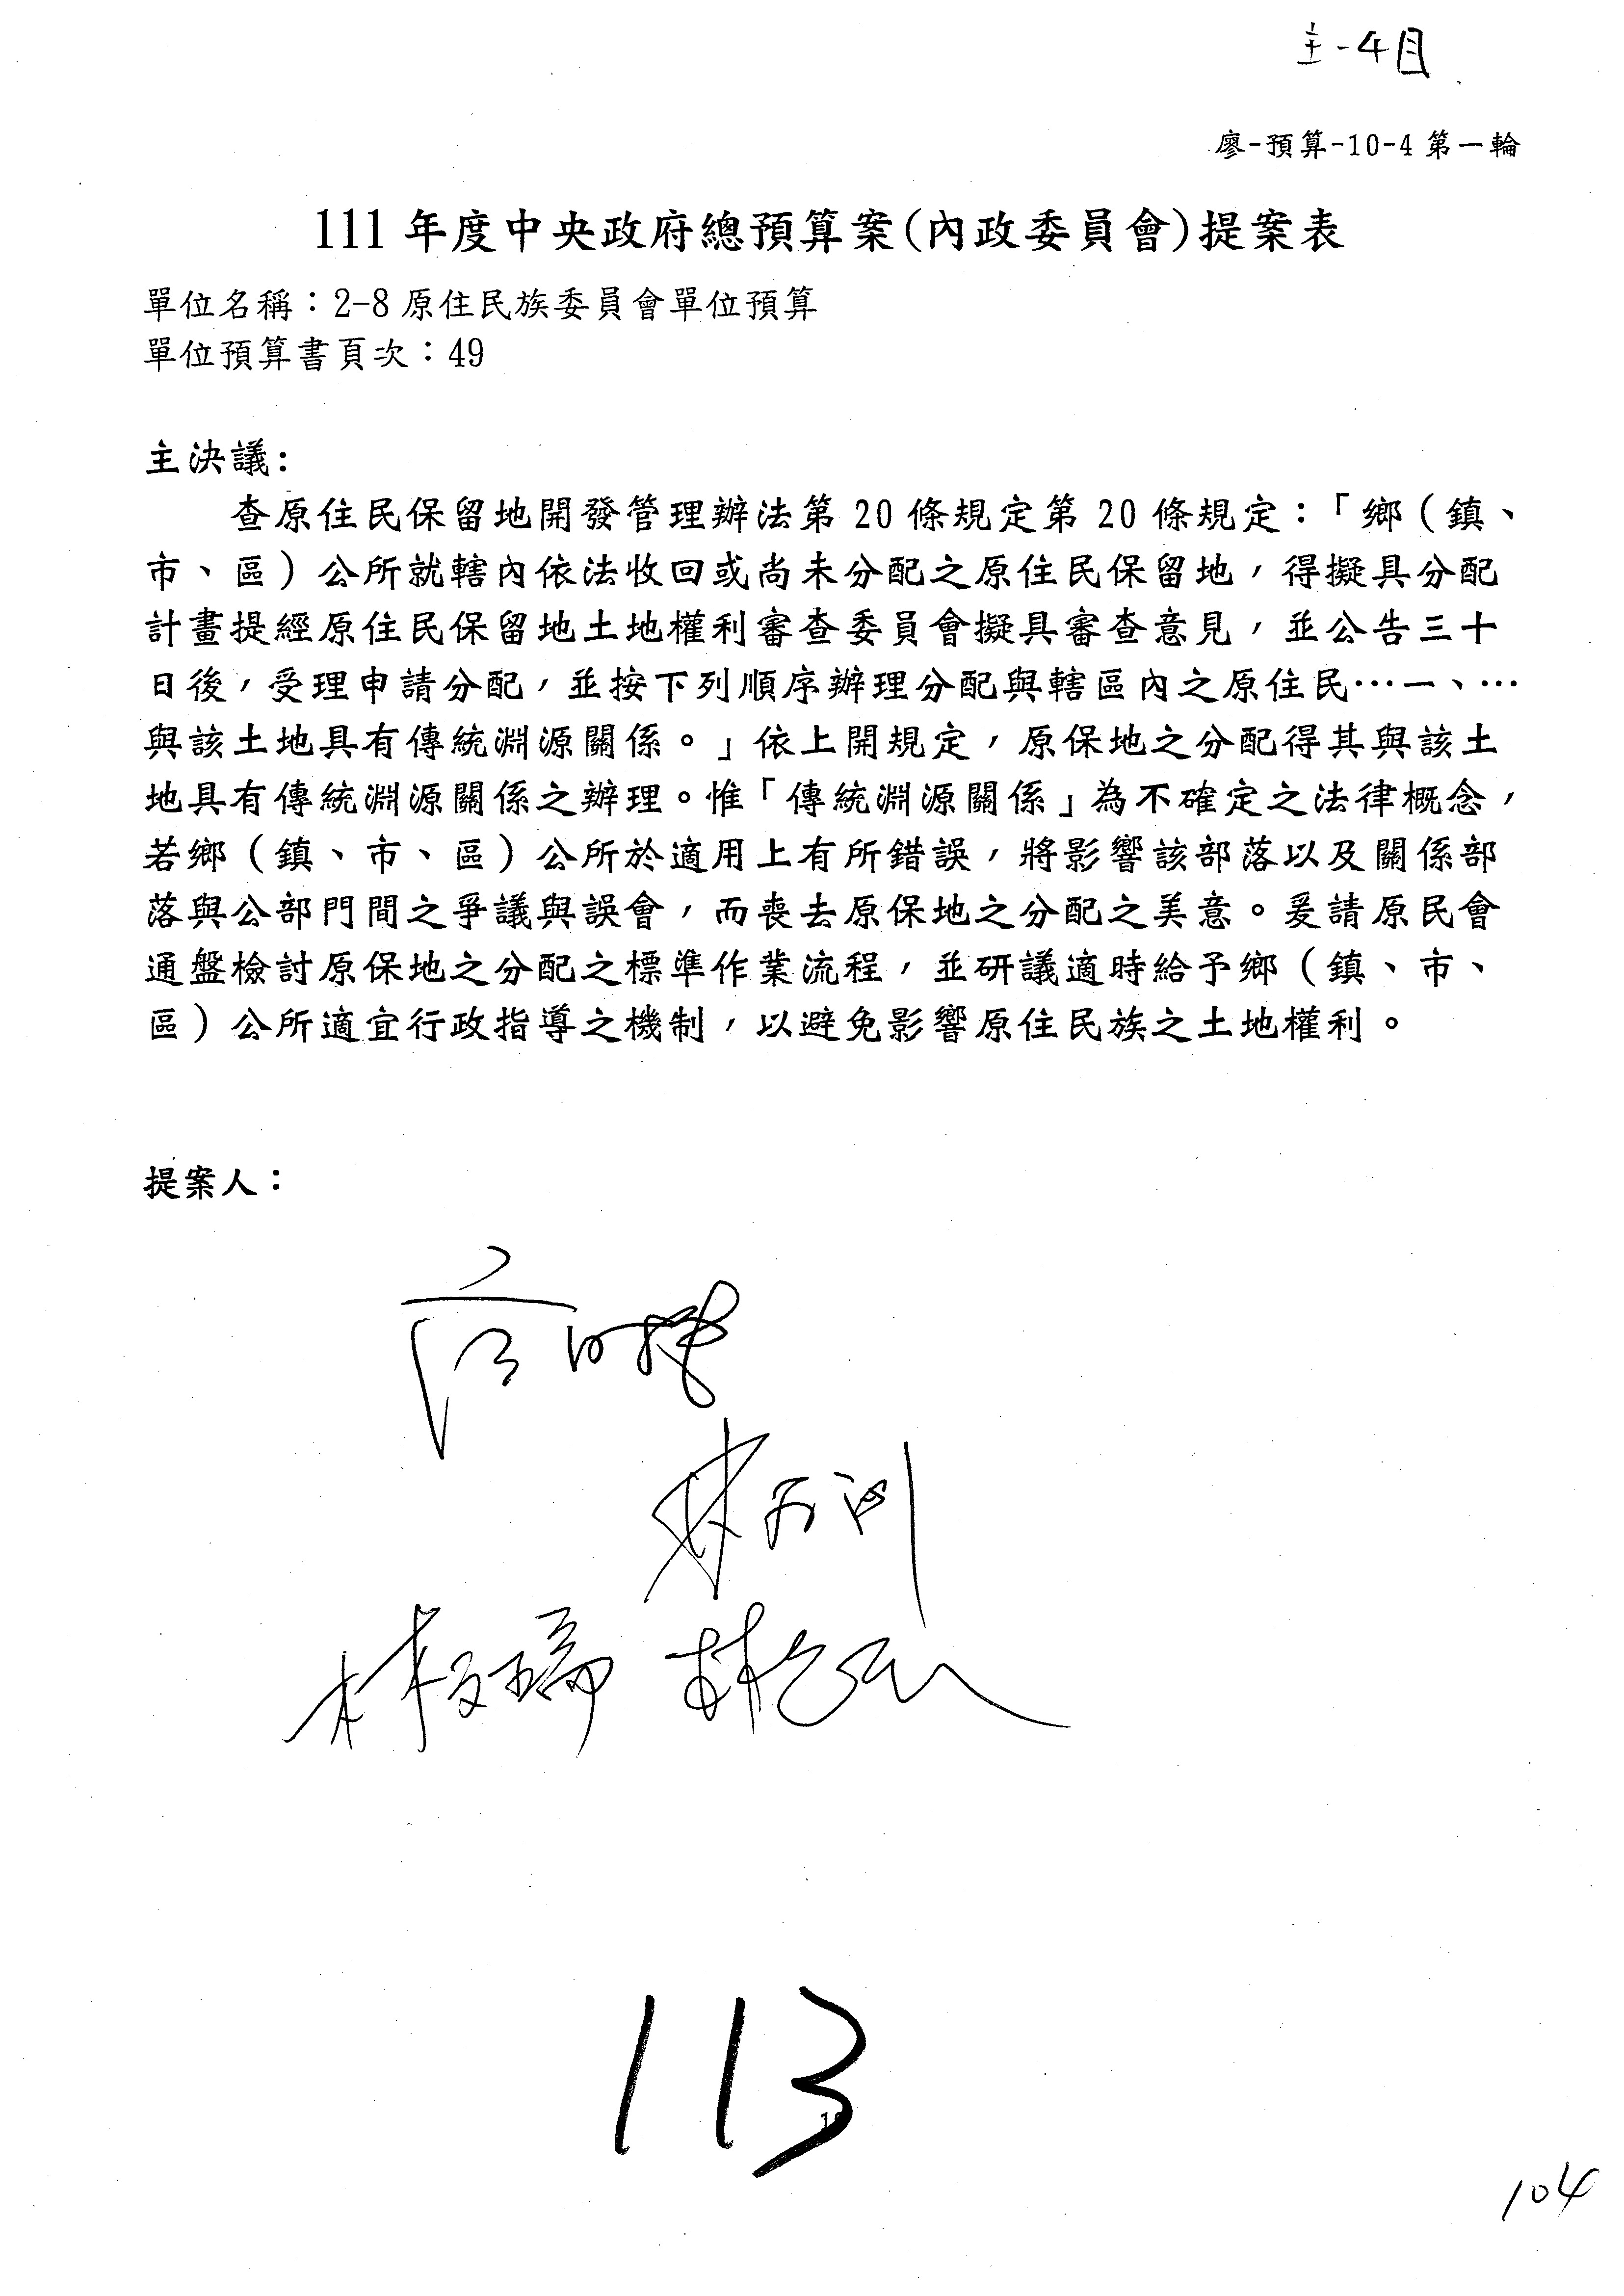 主-4目
廖-預算-10-4 第一輪
111 年度中央政府總預算案(內政委員會)提案表
單位名稱：2-8 原住民族委員會單位預算
單位預算書頁次：49
主決議：
查原住民保留地開發管理辦法第 20 條規定第 20 條規定：「鄉（鎮、
市、區）公所就轄內依法收回或尚未分配之原住民保留地，得擬具分配
計畫提經原住民保留地土地權利審查委員會擬具審查意見，並公告三十
日後，受理申請分配，並按下列順序辦理分配與轄區內之原住民…一、…
與該土地具有傳統淵源關係。」依上開規定，原保地之分配得其與該土
地具有傳統淵源關係之辦理。惟「傳統淵源關係」為不確定之法律概念，
若鄉（鎮、市、區）公所於適用上有所錯誤，將影響該部落以及關係部
落與公部門間之爭議與誤會，而喪去原保地之分配之美意。爰請原民會
通盤檢討原保地之分配之標準作業流程，並研議適時給予鄉（鎮、市、
區）公所適宜行政指導之機制，以避免影響原住民族之土地權利。
提案人：
113
104